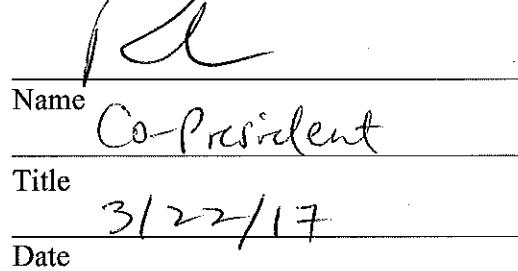 Name
Co-President
Title
3/22/17
Date